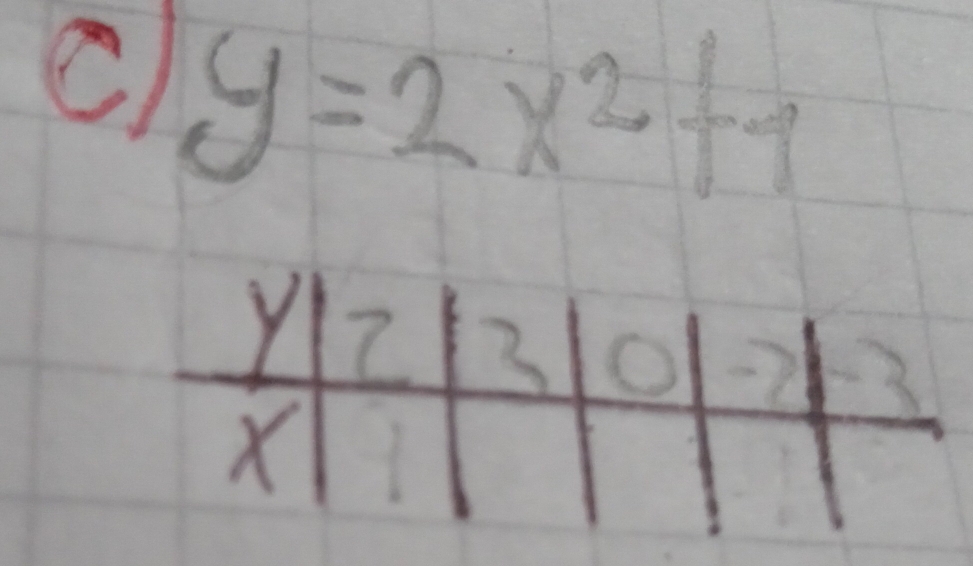 c) y = 2x² + 1
y | 2 | 3 | 0 | -2 | -3
x | 1